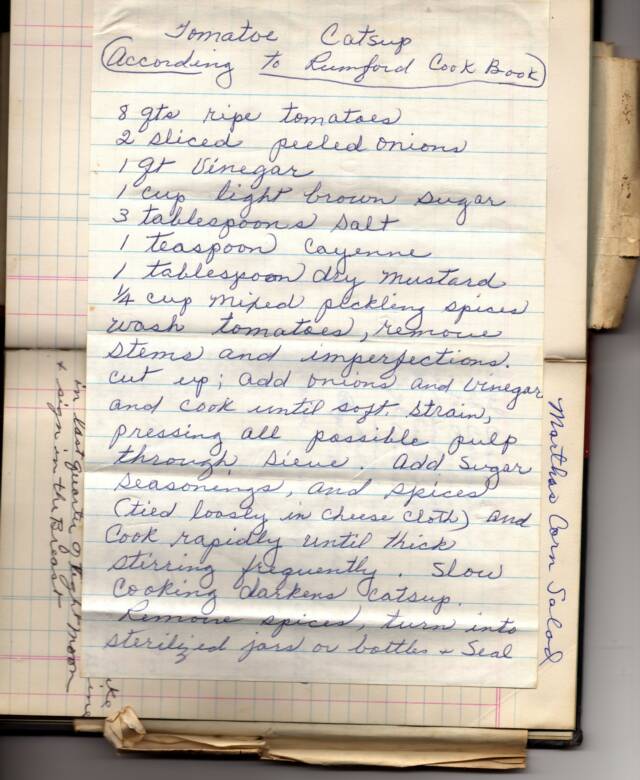 Tomatoe Catsup
(According to Rumford Cook Book)
8 qts ripe tomatoes
2 sliced peeled onions
1 qt Vinegar
1 cup light brown sugar
3 tablespoons salt
1 teaspoon cayenne
1 tablespoon dry mustard
1/4 cup mixed pickling spices
wash tomatoes, remove
stems and imperfections.
cut up; add onions and vinegar
and cook until soft. Strain,
pressing all possible pulp
through sieve. add sugar
seasonings, and spices
(tied loosly in cheese cloth) and
Cook rapidly until thick
stirring frequently. Slow
cooking darkens catsup.
Remove spices, turn into
sterilized jars or bottles + seal
Marthas Corn Salad
in last quarter of light moon
+ sign in the Breast